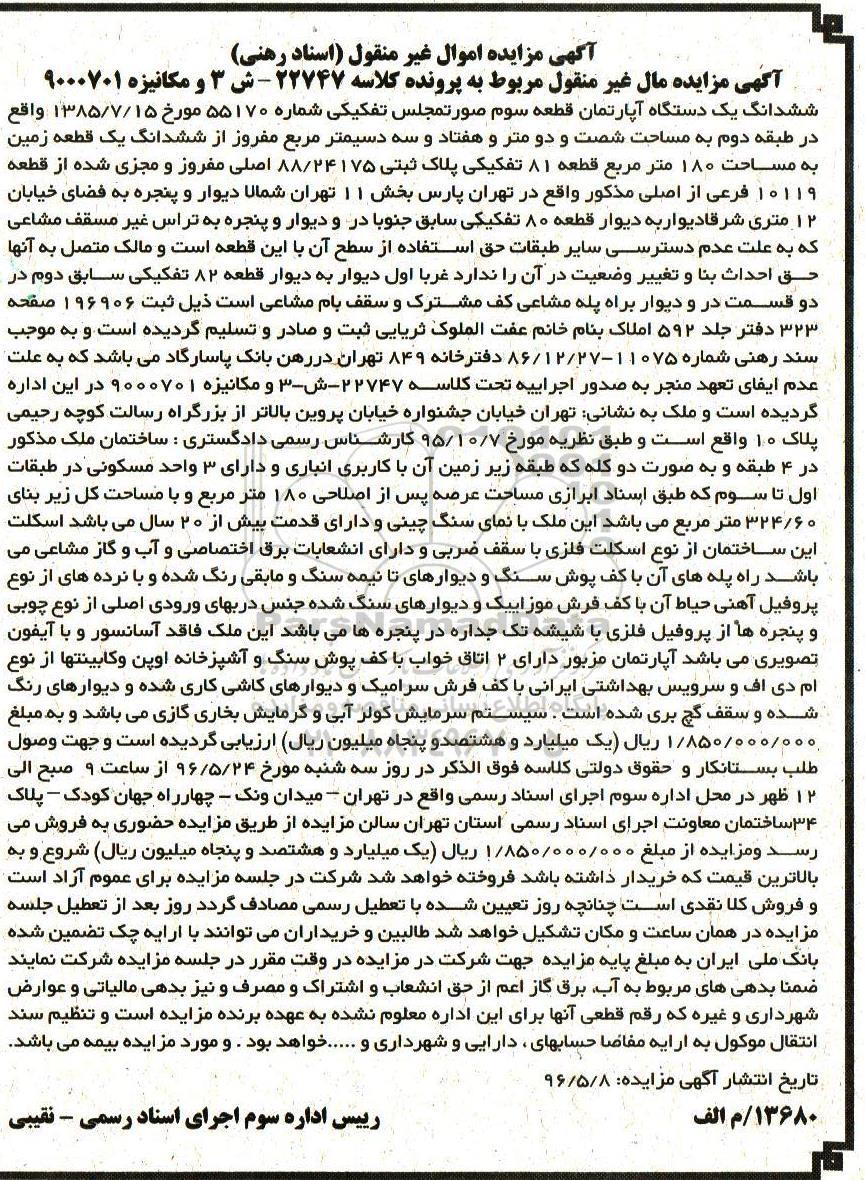 آگهی مزایده اموال غیر منقول (اسناد رهنی)
آگهی مزایده مال غیر منقول مربوط به پرونده کلاسه ۲۲۷۴۷ - ش ۳ و مکانیزه ۹۰۰۰۷۰۱
ششدانگ یک دستگاه آپارتمان قطعه سوم صورتمجلس تفکیکی شماره ۵۵۱۷۰ مورخ ۱۳۸۵/۷/۱۵ واقع
در طبقه دوم به مساحت شصت و دو متر و هفتاد و سه دسیمتر مربع مفروز از ششدانگ یک قطعه زمین
به مساحت ۱۸۰ متر مربع قطعه ۸۱ تفکیکی پلاک ثبتی ۸۸/۲۴۱۷۵ اصلی مفروز و مجزی شده از قطعه
۱۰۱۱۹ فرعی از اصلی مذکور واقع در تهران پارس بخش ۱۱ تهران شمالا دیوار و پنجره به فضای خیابان
۱۲ متری شرقادیواربه دیوار قطعه ۸۰ تفکیکی سابق جنوبا در و دیوار و پنجره به تراس غیر مسقف مشاعی
که به علت عدم دسترسی سایر طبقات حق استفاده از سطح آن با این قطعه است و مالک متصل به آنها
حق احداث بنا و تغییر وضعیت در آن را ندارد غربا اول دیوار به دیوار قطعه ۸۲ تفکیکی سابق دوم در
دو قسمت در و دیوار براه پله مشاعی کف مشترک و سقف بام مشاعی است ذیل ثبت ۱۹۶۹۰۶ صفحه
۳۲۳ دفتر جلد ۵۹۲ املاک بنام خانم عفت الملوک ثریایی ثبت و صادر و تسلیم گردیده است و به موجب
سند رهنی شماره ۱۱۰۷۵-۸۶/۱۲/۲۷ دفترخانه ۸۴۹ تهران دررهن بانک پاسارگاد می باشد که به علت
عدم ایفای تعهد منجر به صدور اجراییه تحت کلاسه ۲۲۷۴۷-ش-۳ و مکانیزه ۹۰۰۰۷۰۱ در این اداره
گردیده است و ملک به نشانی: تهران خیابان جشنواره خیابان پروین بالاتر از بزرگراه رسالت کوچه رحیمی
پلاک ۱۰ واقع است و طبق نظریه مورخ ۹۵/۱۰/۷ کارشناس رسمی دادگستری : ساختمان ملک مذکور
در ۴ طبقه و به صورت دو کله که طبقه زیر زمین آن با کاربری انباری و دارای ۳ واحد مسکونی در طبقات
اول تا سوم که طبق اسناد ابرازی مساحت عرصه پس از اصلاحی ۱۸۰ متر مربع و با مساحت کل زیر بنای
۳۲۴/۶۰ متر مربع می باشد این ملک با نمای سنگ چینی و دارای قدمت بیش از ۲۰ سال می باشد اسکلت
این ساختمان از نوع اسکلت فلزی با سقف ضربی و دارای انشعابات برق اختصاصی و آب و گاز مشاعی می
باشد راه پله های آن با کف پوش سنگ و دیوارهای تا نیمه سنگ و مابقی رنگ شده و با نرده های از نوع
پروفیل آهنی حیاط آن با کف فرش موزاییک و دیوارهای سنگ شده جنس دربهای ورودی اصلی از نوع چوبی
و پنجره ها از پروفیل فلزی با شیشه تک جداره در پنجره ها می باشد این ملک فاقد آسانسور و با آیفون
تصویری می باشد آپارتمان مزبور دارای ۲ اتاق خواب با کف پوش سنگ و آشپزخانه اوپن وکابینتها از نوع
ام دی اف و سرویس بهداشتی ایرانی با کف فرش سرامیک و دیوارهای کاشی کاری شده و دیوارهای رنگ
شده و سقف گچ بری شده است . سیستم سرمایش کولر آبی و گرمایش بخاری گازی می باشد و به مبلغ
۱/۸۵۰/۰۰۰/۰۰۰ ریال (یک میلیارد و هشتصدو پنجاه میلیون ریال) ارزیابی گردیده است و جهت وصول
طلب بستانکار و حقوق دولتی کلاسه فوق الذکر در روز سه شنبه مورخ ۹۶/۵/۲۴ از ساعت ۹ صبح الی
۱۲ ظهر در محل اداره سوم اجرای اسناد رسمی واقع در تهران – میدان ونک – چهارراه جهان کودک – پلاک
۳۴ساختمان معاونت اجرای اسناد رسمی استان تهران سالن مزایده از طریق مزایده حضوری به فروش می
رسد ومزایده از مبلغ ۱/۸۵۰/۰۰۰/۰۰۰ ریال (یک میلیارد و هشتصد و پنجاه میلیون ریال) شروع و به
بالاترین قیمت که خریدار داشته باشد فروخته خواهد شد شرکت در جلسه مزایده برای عموم آزاد است
و فروش کلا نقدی است چنانچه روز تعیین شده با تعطیل رسمی مصادف گردد روز بعد از تعطیل جلسه
مزایده در همان ساعت و مکان تشکیل خواهد شد طالبین و خریداران می توانند با ارایه چک تضمین شده
بانک ملی ایران به مبلغ پایه مزایده جهت شرکت در مزایده در وقت مقرر در جلسه مزایده شرکت نمایند
ضمنا بدهی های مربوط به آب، برق گاز اعم از حق انشعاب و اشتراک و مصرف و نیز بدهی مالیاتی و عوارض
شهرداری و غیره که رقم قطعی آنها برای این اداره معلوم نشده به عهده برنده مزایده است و تنظیم سند
انتقال موکول به ارایه مفاصا حسابهای ، دارایی و شهرداری و .....خواهد بود . و مورد مزایده بیمه می باشد.
تاریخ انتشار آگهی مزایده: ۹۶/۵/۸
۱۳۶۸۰/م الف
رییس اداره سوم اجرای اسناد رسمی - نقیبی
ParsNamadData